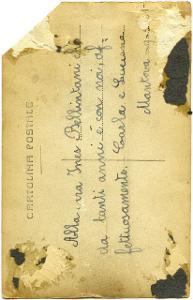 CARTOLINA POSTALE
Alla sra Ines Bellintani che
da tanti anni è con noi, af-
fettuosamente. Carla e Luciana
Mantova